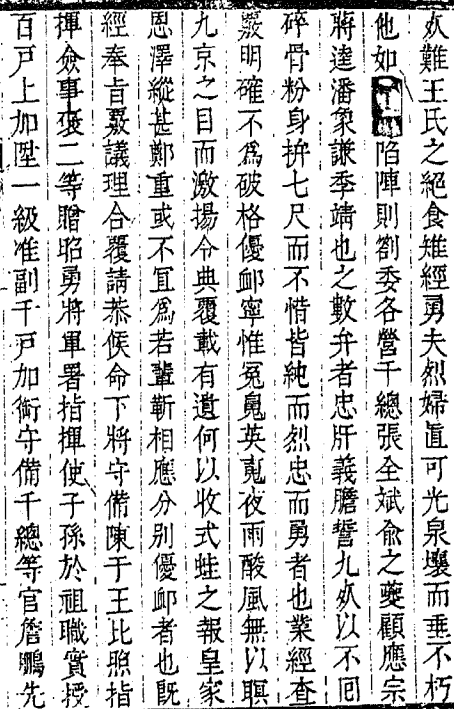 難王氏之絕食雉經勇夫烈婦直可光泉壤而垂不朽
他如陷陣則劄委各營千總張全斌俞之夔顧應宗
蔣達潘象謙季靖也之數弁者忠肝義膽誓九以不回
碎骨粉身拚七尺而不惜皆純而烈忠而勇者也業經查
覈明確不爲破格優卹寧惟冤鬼英䰟夜雨酸風無以瞑
九京之目而激揚令典覆載有遺何以收式蛙之報皇家
恩澤縱甚鄭重或不宜爲若輩靳相應分别優卹者也旣
經奉旨覈議理合覆請恭候命下將守備陳于王比照指
揮僉事襃二等贈昭勇將軍署指揮使子孫於祖職實授
百戶上加陞一級准副千戶加銜守備千總等官詹鵬先